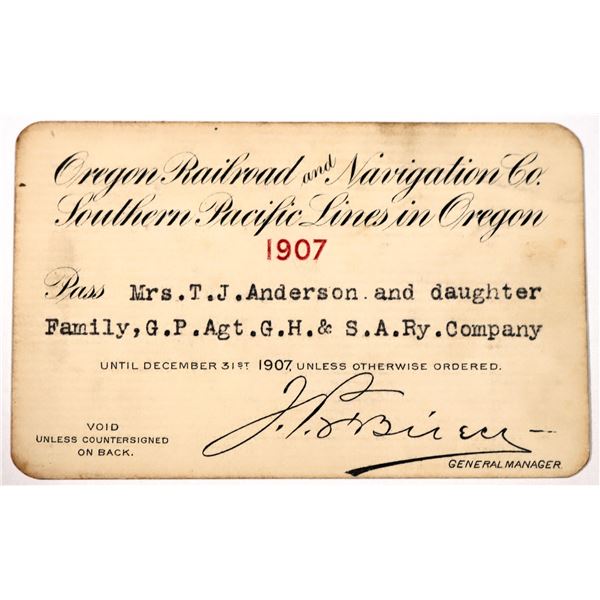 Oregon Railroad and Navigation Co.
Southern Pacific Lines in Oregon
1907
Pass Mrs.T.J.Anderson and daughter
Family,G.P.Agt.G.H.& S.A.Ry.Company
UNTIL DECEMBER 31ST 1907, UNLESS OTHERWISE ORDERED.
VOID
UNLESS COUNTERSIGNED
ON BACK.
J.P. O'Brien
GENERAL MANAGER.